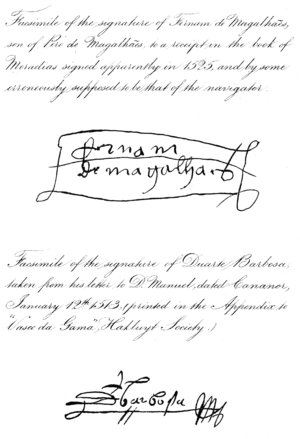 Facsimile of the signature of Fernam de Magalhães,
son of Pero de Magalhães to a receipt in the book of
Moradias signed apparently in 1525, and by some
erroneously supposed to be that of the navigator.
fernam
de magalhães
Facsimile of the signature of Duarte Barbosa,
taken from his letter to D. Manuel, dated Cananor,
January 12th 1513, (printed in the Appendix to
"Vasco da Gama", Hakluyt Society.)
Barbosa